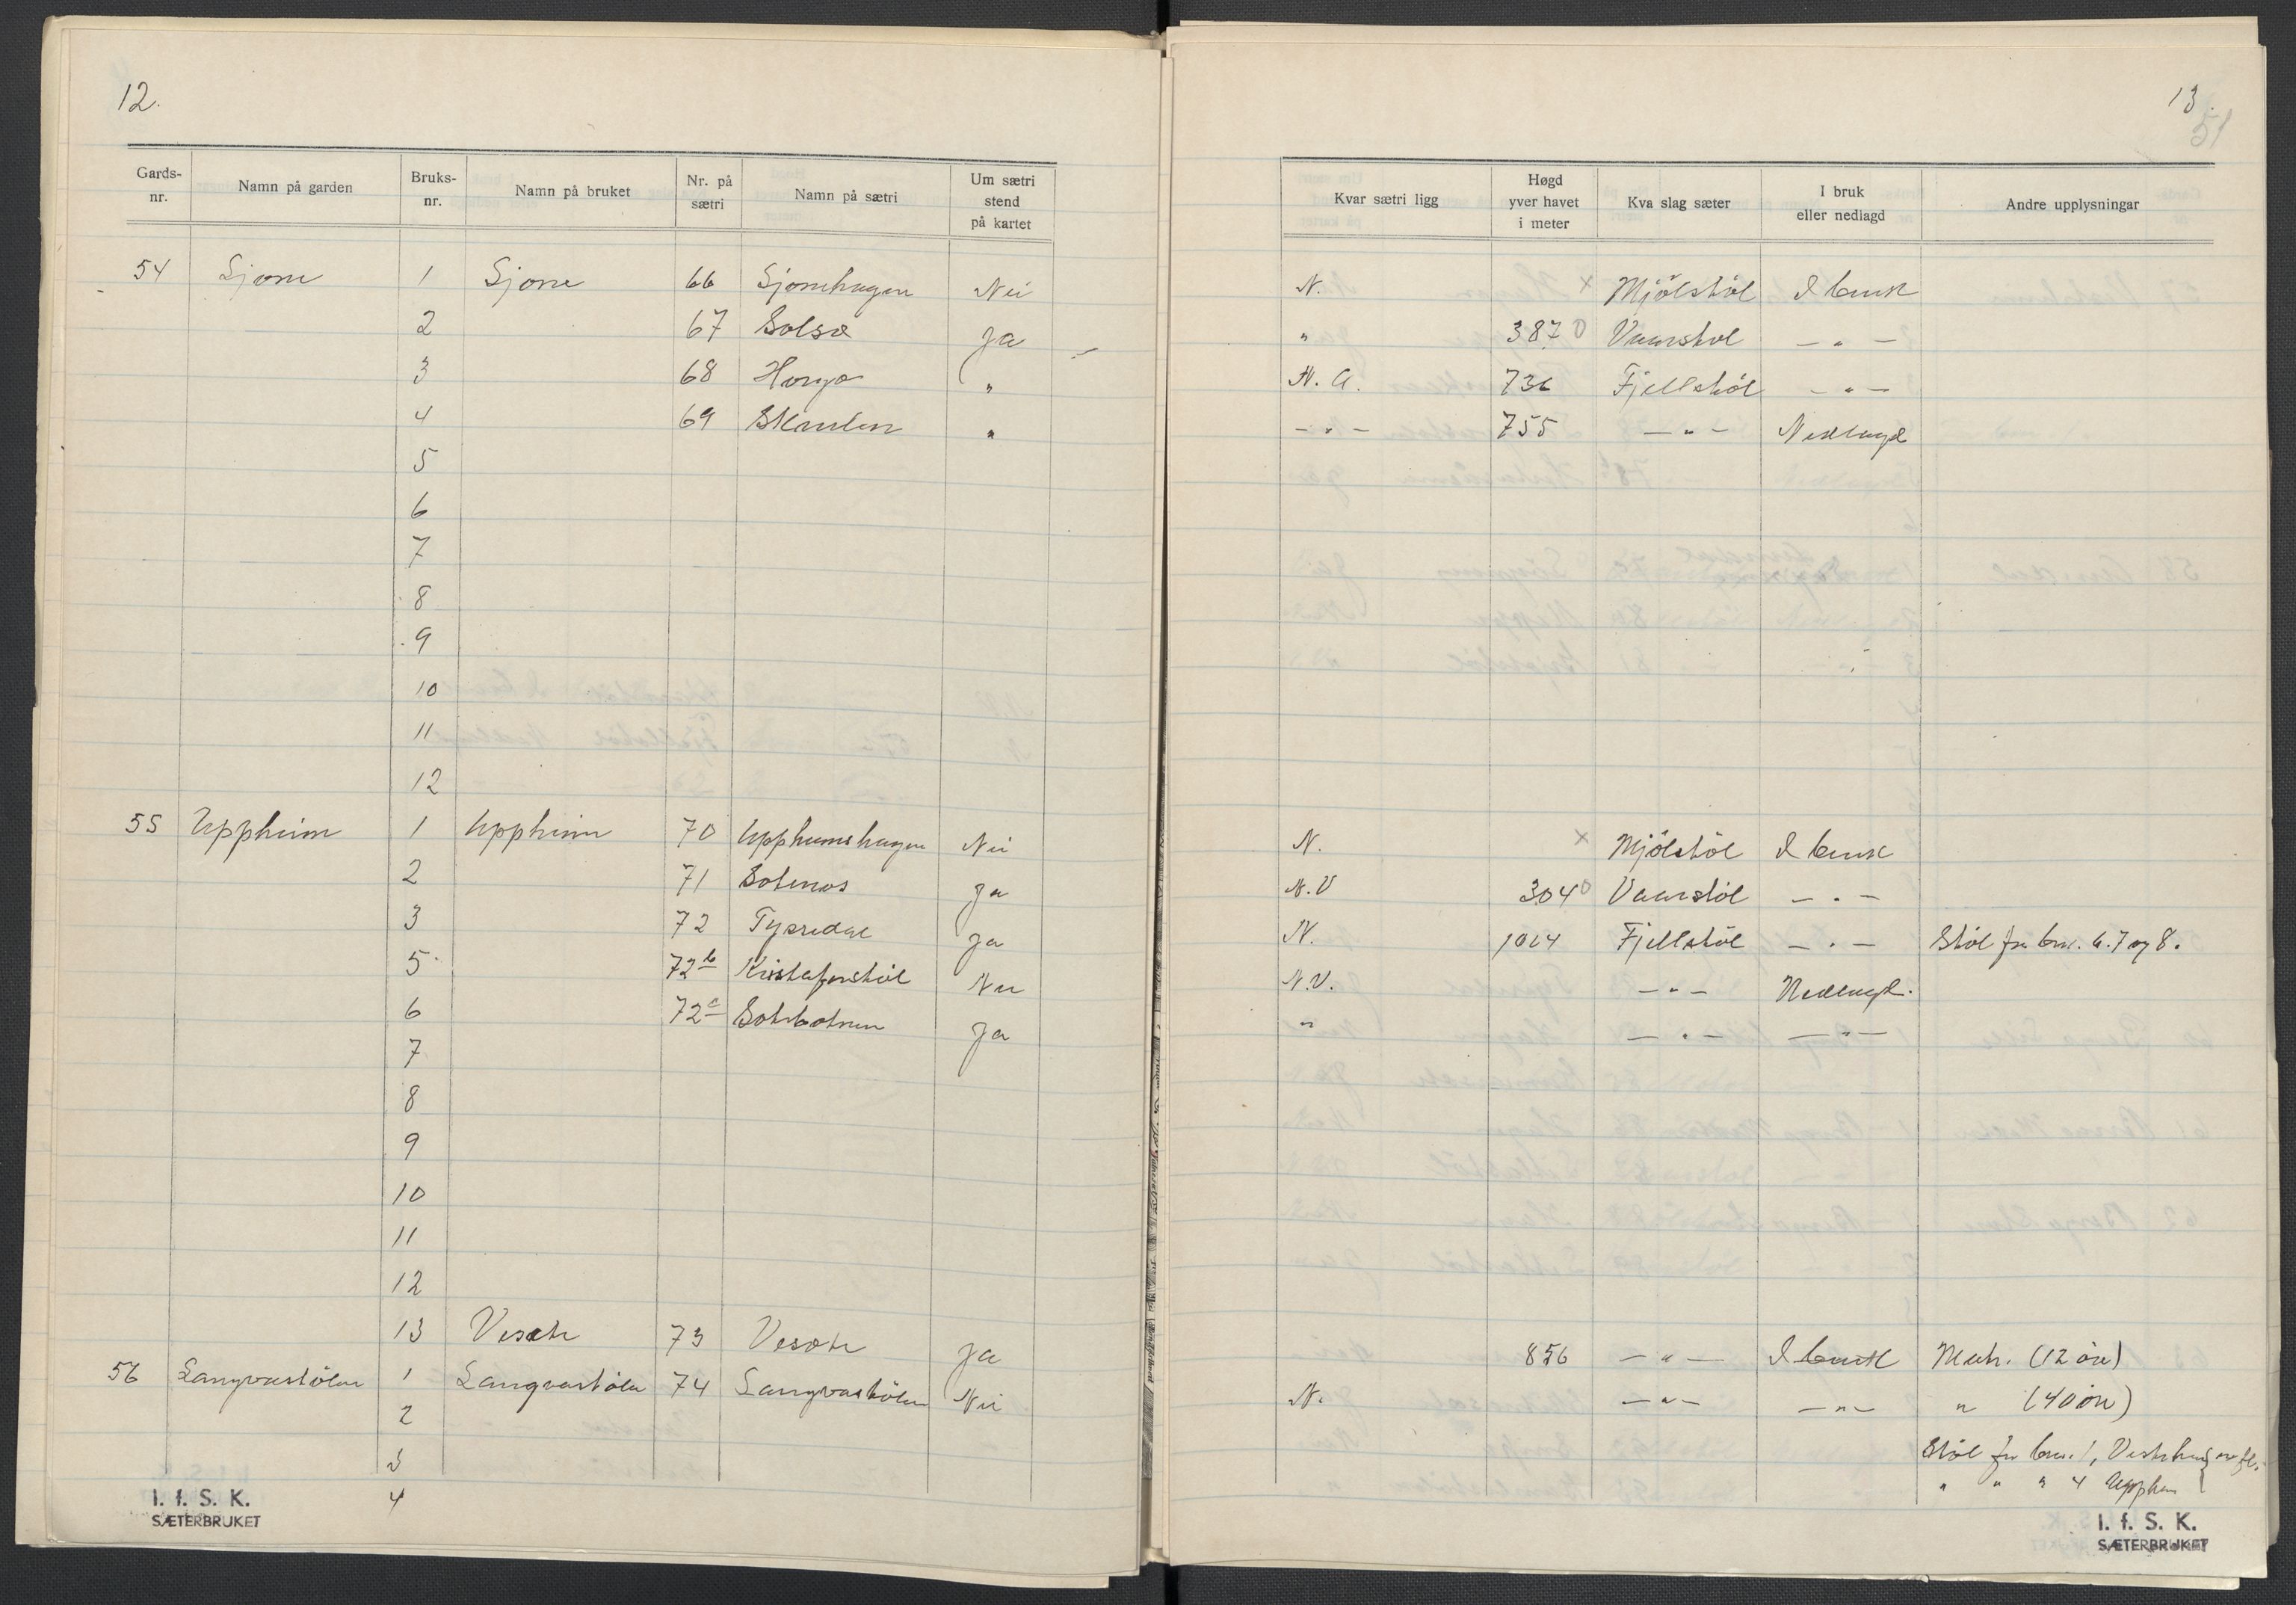 12.
Gards-nr. Namn på garden Bruks-nr. Namn på bruket Nr. på sætri Namn på sætri Um sætri stend på kartet
54 Sjone 1 Sjone 66 Sjonehagen Nei
2 67 Solsæ Ja
3 68 Horgo "
4 69 Skaulen "
5
6
7
8
9
10
11
12
55 Uppheim 1 Uppheim 70 Uppheimshagen Nei
2 71 Sotenos Ja
3 72 Tysredal Ja
5 72b Kristaferstöl Nei
6 72c Sotebotnen Ja
7
8
9
10
11
12
13 Vesete 73 Vesete Ja
56 Langvastölen 1 Langvastölen 74 Langvastölen Nei
2
3
4
I. f. S. K.
SÆTERBRUKET
13.
51
Kvar sætri ligg Høgd yver havet i meter Kva slag sæter I bruk eller nedlagd Andre upplysningar
N. x Mjölstöl I bruk
" 387 0 Vaarstöl — " —
N. A. 736 Fjellstöl — " —
— " — 755 — " — Nedlagd
N. x Mjölstöl I bruk
N.V 304 0 Vaarstöl — " —
N. 1014 Fjellstöl — " — Stöl fr bnr. 6. 7 og 8.
N.V. — " — Nedlagd.
" — " — — " —
856 — " — I bruk Matr. (12 öre)
N. — " — — " — " (40 öre)
Stöl fr bnr. 1,
" " " 4 Upphei
I. f. S. K.
SÆTERBRUKET